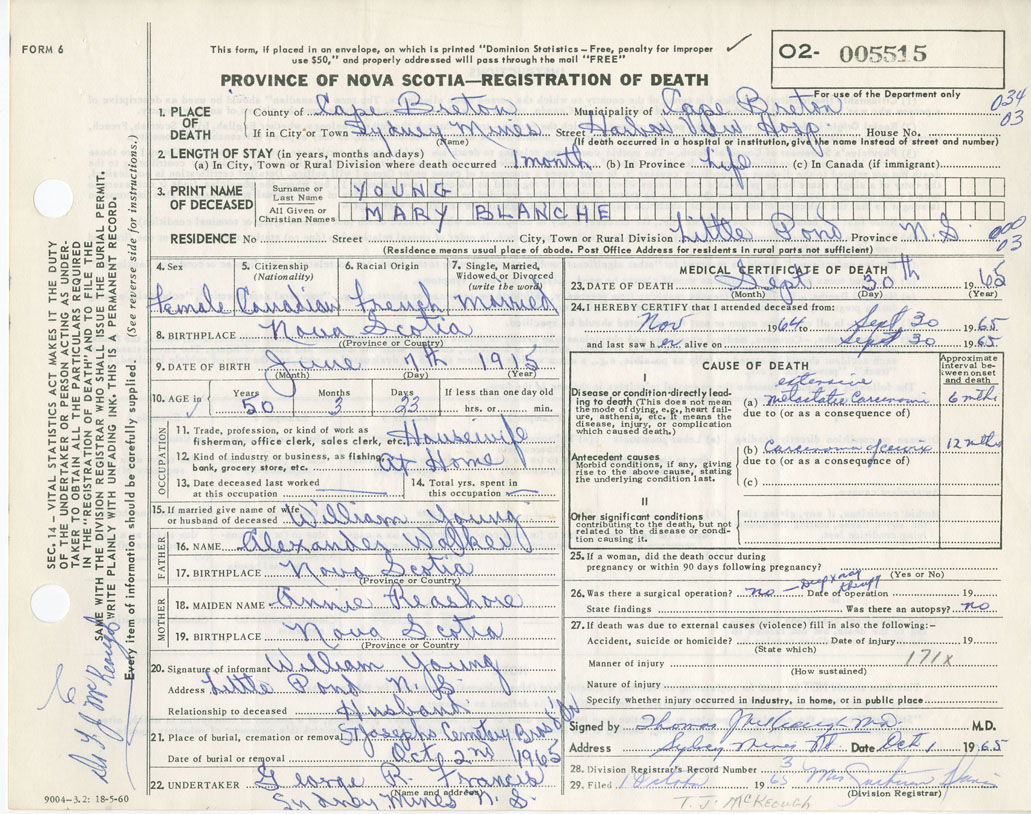 FORM 6
This form, if placed in an envelope, on which is printed "Dominion Statistics – Free, penalty for improper
use $50," and properly addressed will pass through the mail "FREE"
O2- 005515
For use of the Department only
PROVINCE OF NOVA SCOTIA—REGISTRATION OF DEATH
034
03
1. PLACE OF DEATH
County of Cape Breton Municipality of Cape Breton
If in City or Town Sydney Mines Street Harbor View Hosp. House No.
(Name) (If death occurred in a hospital or institution, give the name instead of street and number)
2. LENGTH OF STAY (in years, months and days)
(a) In City, Town or Rural Division where death occurred 1 month (b) In Province Life (c) In Canada (if immigrant)
3. PRINT NAME OF DECEASED
Surname or Last Name YOUNG
All Given or Christian Names MARY BLANCHE
RESIDENCE No Street City, Town or Rural Division Little Pond Province N.S.
03
(Residence means usual place of abode. Post Office Address for residents in rural parts not sufficient)
4. Sex Female
5. Citizenship (Nationality) Canadian
6. Racial Origin French
7. Single, Married, Widowed or Divorced (write the word) Married
8. BIRTHPLACE Nova Scotia
(Province or Country)
9. DATE OF BIRTH June 7th 1915
(Month) (Day) (Year)
10. AGE in Years 50 Months 3 Days 23 If less than one day old hrs. or min.
OCCUPATION
11. Trade, profession, or kind of work as fisherman, office clerk, sales clerk, etc. Housewife
12. Kind of industry or business, as fishing, bank, grocery store, etc. At Home
13. Date deceased last worked at this occupation
14. Total yrs. spent in this occupation
15. If married give name of wife or husband of deceased William Young
FATHER
16. NAME Alexander Walker
17. BIRTHPLACE Nova Scotia
(Province or Country)
MOTHER
18. MAIDEN NAME Annie Reashore
19. BIRTHPLACE Nova Scotia
(Province or Country
20. Signature of informant William Young
Address Little Pond N.S.
Relationship to deceased Husband
21. Place of burial, cremation or removal St Josephs Cemetery
Date of burial or removal Oct 2nd 1965
22. UNDERTAKER George R. Francis
(Name and address)
Sydney Mines N.S.
9004–3.2: 18-5-60
MEDICAL CERTIFICATE OF DEATH
23. DATE OF DEATH Sept 30th 1965
(Month) (Day) (Year)
24. I HEREBY CERTIFY that I attended deceased from:
Nov 1964 to Sept 30 1965
and last saw her alive on Sept 30 1965
CAUSE OF DEATH
Approximate interval between onset and death
I
Disease or condition directly leading to death (This does not mean the mode of dying, e.g., heart failure, asthenia, etc. It means the disease, injury, or complication which caused death.)
(a) extensive metastatic Carcinoma 6 mths
due to (or as a consequence of)
Antecedent causes
Morbid conditions, if any, giving rise to the above cause, stating the underlying condition last.
(b) Carcinoma of cervix 12 mths
due to (or as a consequence of)
(c)
II
Other significant conditions
contributing to the death, but not related to the disease or condition causing it.
25. If a woman, did the death occur during
pregnancy or within 90 days following pregnancy?
(Yes or No)
26. Was there a surgical operation? no — deep xray therapy Date of operation 19
State findings Was there an autopsy? no
27. If death was due to external causes (violence) fill in also the following:–
Accident, suicide or homicide? Date of injury 19
(State which)
Manner of injury 171x
(How sustained)
Nature of injury
Specify whether injury occurred in industry, in home, or in public place
Signed by Thomas J McKeough M.D. M.D.
Address Sydney Mines NS. Date Oct 1 1965
28. Division Registrar's Record Number 3
29. Filed 1 October 1965 Mrs
(Division Registrar)
T. J. McKEOUGH
SEC. 14 – VITAL STATISTICS ACT MAKES IT THE DUTY
OF THE UNDERTAKER OR PERSON ACTING AS UNDER-
TAKER TO OBTAIN ALL THE PARTICULARS REQUIRED
IN THE "REGISTRATION OF DEATH" AND TO FILE THE
SAME WITH THE DIVISION REGISTRAR WHO SHALL ISSUE THE BURIAL PERMIT.
WRITE PLAINLY WITH UNFADING INK. THIS IS A PERMANENT RECORD.
Every item of information should be carefully supplied. (See reverse side for instructions.)
Dr T J McKeough